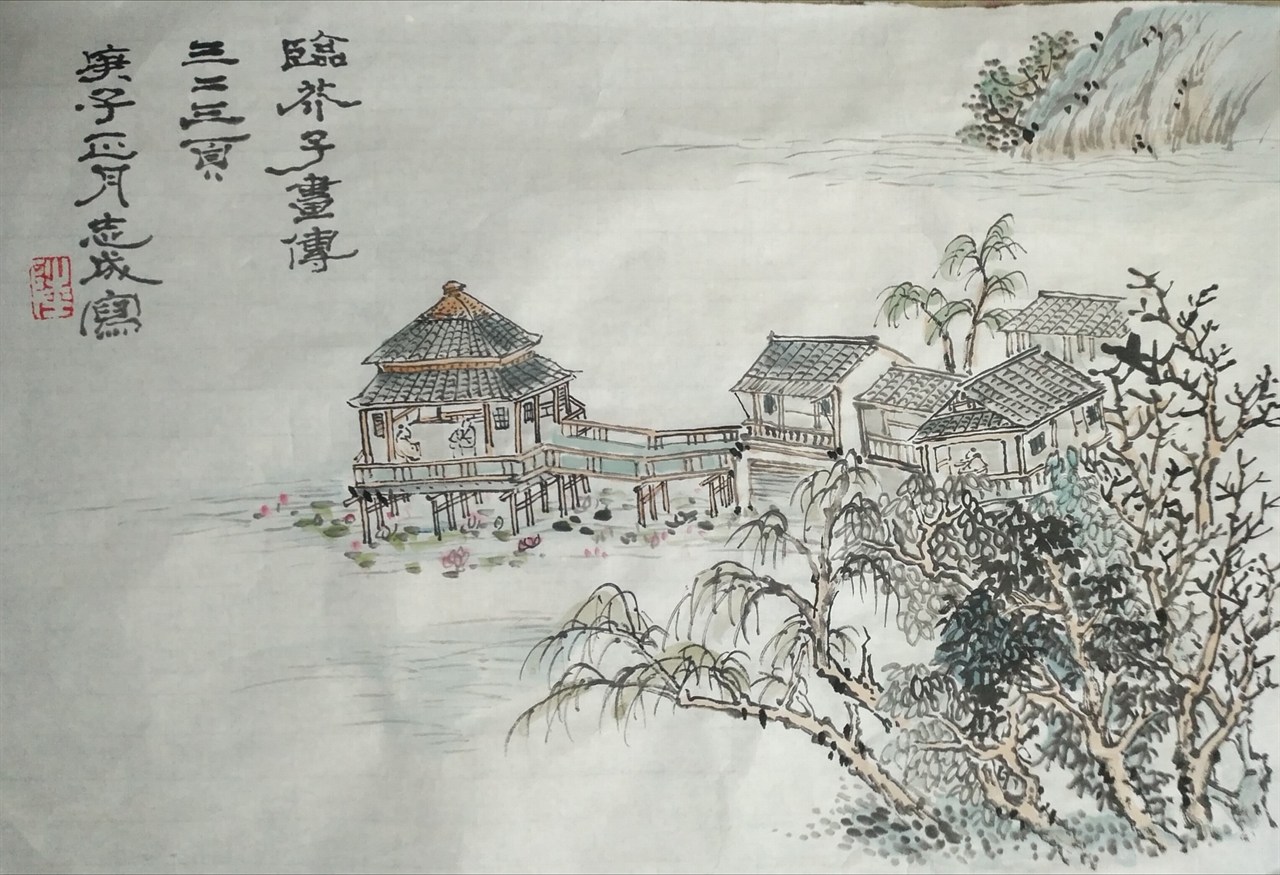 臨芥子畫傳
三二三頁
庚子正月志成寫